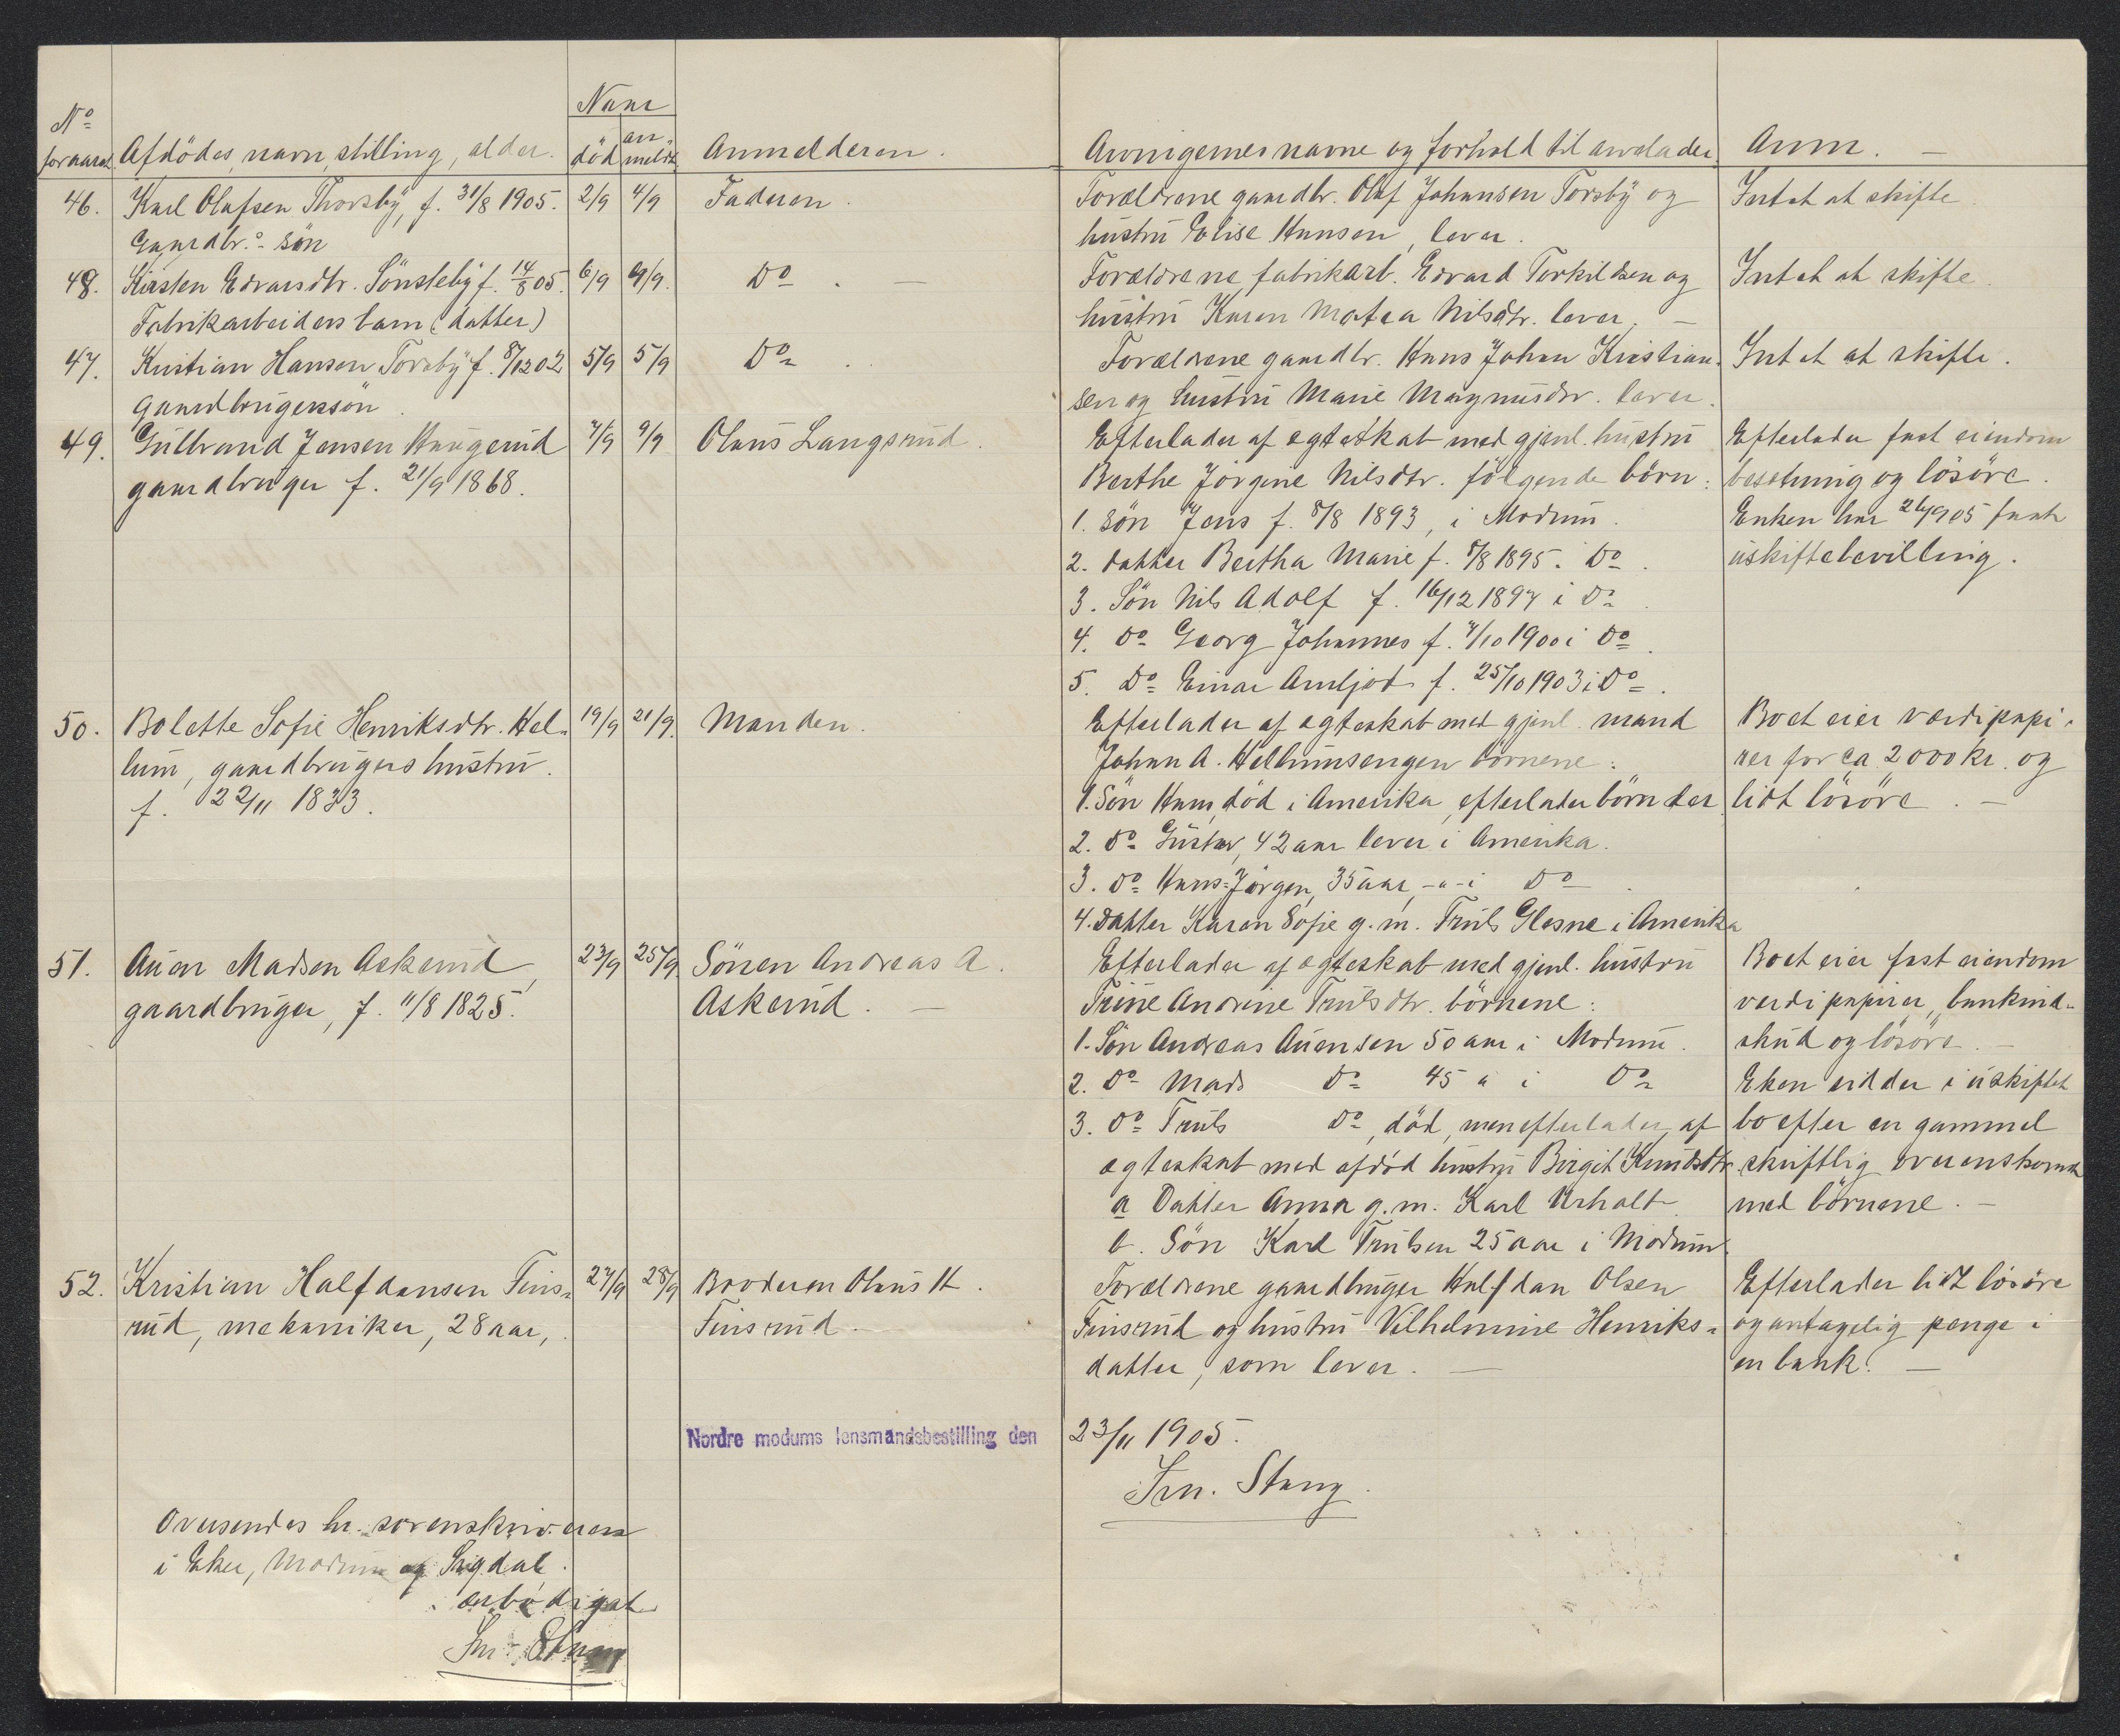 No foraaret. Afdödes navn, stilling, alder. Naar död anmeldt Anmelderen. Arvingernes navne og forhold til arvelader Anm. —
46. Karl Olafsen Thorsby, f. 31/8 1905. 2/9 4/9 Faderen. Forældrene gaardbr. Olaf Johansen Torsby og Intet at skifte.
Gaardbr.s sön hustru Elise Hansen, lever.
48. Kirsten Edvardsdtr. Sönsteby f. 14/8 05. 6/9 9/9. Do. — Forældrene, fabrikarb. Edvard Torkildsen og Intet at skifte.
Fabrikarbeiders barn (datter) hustru Karen Matea Nilsdtr. lever. —
47. Kristian Hansen Torsby f. 8/12 02 5/9 5/9 Do. Forældrene gaardbr. Hans Johan Kristian- Intet at skifte.
gaardbrugerssön. sen og hustru Marie Magnusdtr. lever.
49. Gulbrand Jensen Haugerud 7/9 9/9 Olaus Langsrud. Efterlader af egteskab med gjenl. hustru Efterlader fast eiendom
gaardbruger f. 21/9 1868. Berthe Jörgine Nilsdtr. fölgende börn: besetning og lösöre.
1. Sön Jens f. 8/8 1893, i Modum. Enken har 26/9 05 faat
2. Datter Bertha Marie f. 8/8 1895 i Do. uskiftebevilling.
3. Sön Nils Adolf f. 16/12 1897 i Do.
4. Do Georg Johannes f. 7/10 1900 i Do.
5. Do Einar Arnljot f. 25/10 1903 i Do.
50. Bolette Sofie Henriksdtr. Hel- 19/9 21/9. Manden. Efterlader af egteskab med gjenl. mand Boet eier værdipapi-
lum, gaardbrugers hustru. Johan A. Hellumsengen börnene: rer for ca 2000 kr. og
f. 22/11 1833. 1. Sön Hans, död i Amerika, efterlader börn der lidt lösöre. —
2. Do Gustav, 42 aar lever i Amerika.
3. Do Hans Jörgen, 35 aar, -"- i Do.
4. Datter Karen Sofie g. m. Truls Glesne i Amerika
51. Auen Madsen Askerud, 23/9 25/9. Sönen Andreas A. Efterlader af egteskab med gjenl. hustru Boet eier fast eiendom
gaardbruger, f. 11/8 1825. Askerud. — Trine Andrine Trulsdtr. börnene: verdipapirer, bankind-
1. Sön Andreas Auensen 50 aar i Modum. skud og lösöre. —
2. Do Mads Do 45 " i Do Eken sidder i uskiftet
3. Do Truls Do, död, men efterlader af bo efter en gammel
egteskab med afdöd hustru Birgit Knudsdtr. skriftlig overenskomst
a Datter Anna g. m. Karl Urholt. med börnene. —
b. Sön Karl Trulsen 25 aar i Modum
52. Kristian Halfdansen Fins- 27/9 28/9 Broderen Olaus H. Forældrene gaardbruger Halfdan Olsen Efterlader lidt lösöre
rud, mekaniker, 28 aar, Finsrud. Finsrud og hustru Vilhelmine Henriks- og antagelig penge i
datter, som lever. — en bank. —
Nordre modums lensmandsbestilling den 23/11 1905.
Stang.
Oversendes hr. sorenskriveren
i Eker, Modum og Sigdal.
ærbödigst
Stang